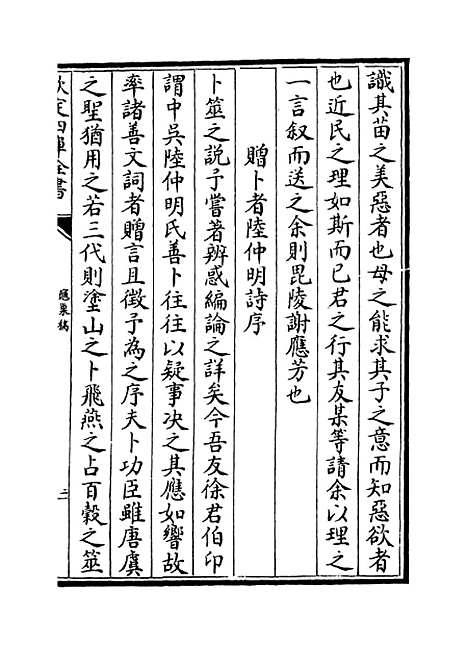 識其苗之美惡者也母之能求其子之意而知惡欲者
也近民之理如斯而已君之行其友某等請余以理之
一言叙而送之余則毘陵謝應芳也
贈卜者陸仲明詩序
卜筮之說予嘗著辨惑編論之詳矣今吾友徐君伯印
謂中吳陸仲明氏善卜往往以疑事决之其應如響故
率諸善文詞者贈言且徵予為之序夫卜功臣雖唐虞
之聖猶用之若三代則塗山之卜飛燕之占百穀之筮
欽定四庫全書
龜巢稿
三